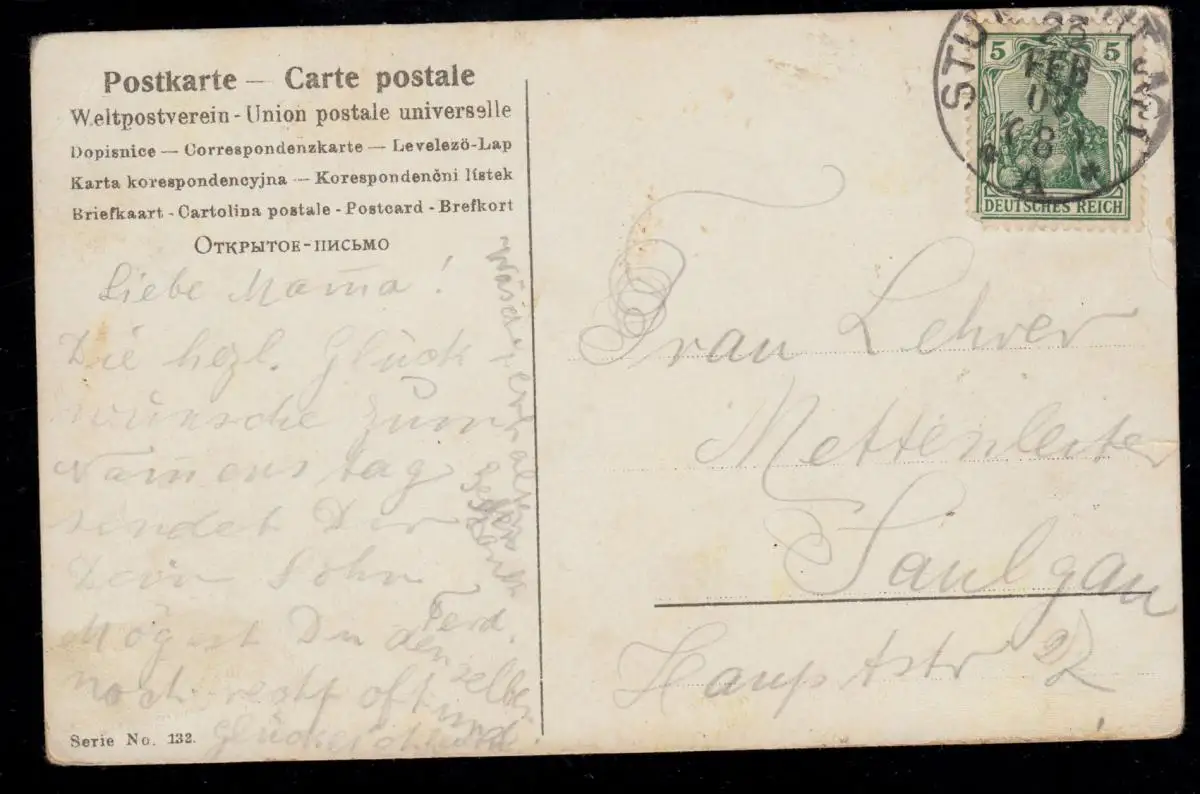 Postkarte — Carte postale
Weltpostverein - Union postale universelle
Dopisnice — Correspondenzkarte — Levelezö-Lap
Karta korespondencyjna — Korespondenčni listek
Briefkaart - Cartolina postale - Postcard - Brefkort
Открытое-письмо
Liebe Mama!
Die hezl. Glück
wünsche zum
Namenstag
sendet Dir
Dein Sohn
Ferd.
Mögest Du denselben
noch recht oft und
glücklich
Wäsche erhalten
besten Dank
Serie No. 132.
5 5
DEUTSCHES REICH
STUTTGART
23
FEB
A
Frau Lehrer
Mettenleiter
Saulgau
Hauptstr